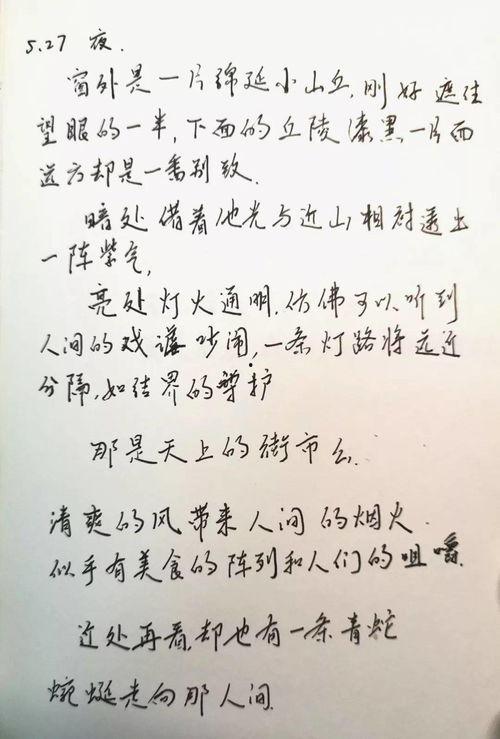 5.27 夜.
窗外是一片绵延小山丘,刚好遮住
望眼的一半,下面的丘陵漆黑一片而
远方却是一番别致.
暗处借着他光与近山相对透出
一阵紫气,
亮处灯火通明,仿佛可以听到
人间的戏谑吵闹,一条灯路将远近
分隔,如结界的守护
那是天上的街市么.
清爽的风带来人间的烟火.
似乎有美食的阵列和人们的咀嚼.
近处再看,却也有一条青蛇
蜿蜒走向那人间.